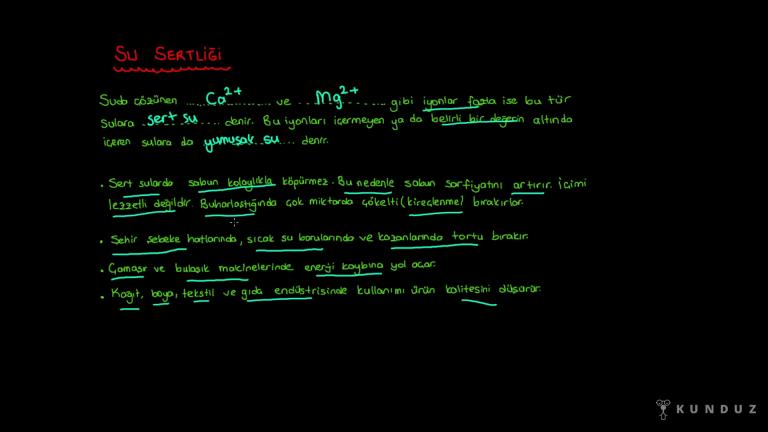 SU SERTLİĞİ
Suda çözünen ... Ca2+ ... ve ... Mg2+ ... gibi iyonlar fazla ise bu tür
sulara ... sert su ... denir. Bu iyonları içermeyen ya da belirli bir değerin altında
içeren sulara da yumuşak su ... denir.
• Sert sularda sabun kolaylıkla köpürmez. Bu nedenle sabun sarfiyatını artırır. İçimi
lezzetli değildir. Buharlaştığında çok miktarda çökelti (kireçlenme) bırakırlar.
• Şehir şebeke hatlarında, sıcak su borularında ve kazanlarında tortu bırakır.
• Çamaşır ve bulaşık makinelerinde enerji kaybına yol açar.
• Kağıt, boya, tekstil ve gıda endüstrisinde kullanımı ürün kalitesini düşürür.
KUNDUZ